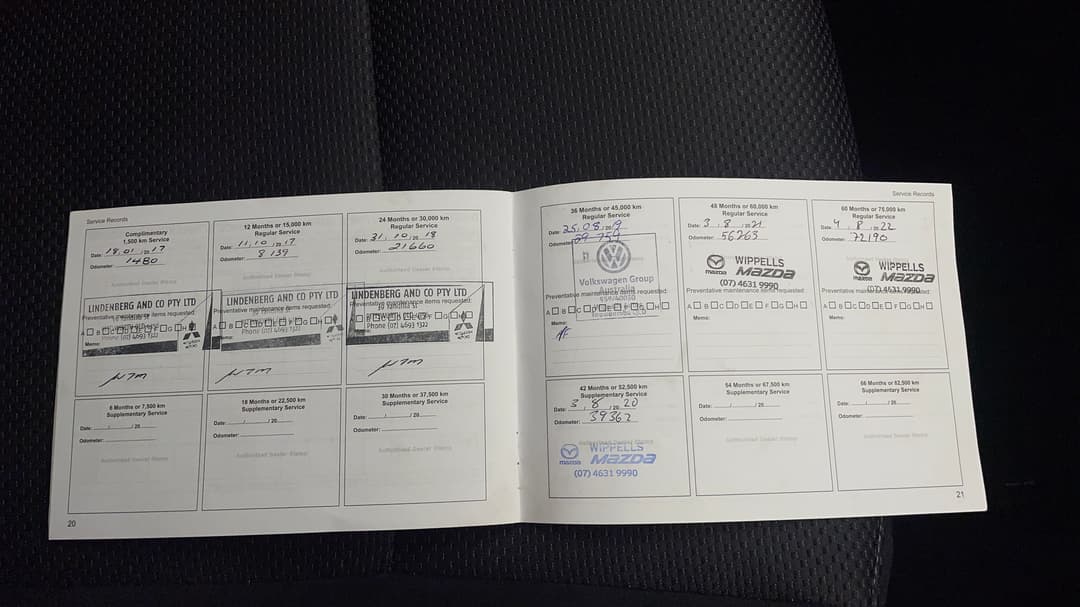 Service Records
Complimentary
1,500 km Service
Date: 18, 01, 20 17
Odometer: 1480
Authorised Dealer Stamp
LINDENBERG AND CO PTY LTD
Preventative maintenance items requested:
A B C D E F G H
Phone (07) 4693 1322
Memo:
12 Months or 15,000 km
Regular Service
Date: 11, 10, 20 17
Odometer: 8 139
Authorised Dealer Stamp
LINDENBERG AND CO PTY LTD
Preventative maintenance items requested:
A B C D E F G H
Phone (07) 4693 1322
24 Months or 30,000 km
Regular Service
Date: 31, 10, 20 18
Odometer: 21660
LINDENBERG AND CO PTY LTD
Preventative maintenance items requested:
Phone (07) 4693 1322
6 Months or 7,500 km
Supplementary Service
Date: / / 20
Odometer:
Authorised Dealer Stamp
18 Months or 22,500 km
Supplementary Service
Date: / / 20
Odometer:
Authorised Dealer Stamp
30 Months or 37,500 km
Supplementary Service
Date: / / 20
Odometer:
Authorised Dealer Stamp
20
Service Records
36 Months or 45,000 km
Regular Service
Date: 25, 08, 20 19
Odometer: 29 759
Volkswagen Group
Australia
Preventative maintenance items requested:
A B C D E F G H
Memo:
48 Months or 60,000 km
Regular Service
Date: 3, 8, 20 21
Odometer: 56265
WIPPELLS
mazda MAZDA
(07) 4631 9990
Preventative maintenance items requested:
A B C D E F G H
Memo:
60 Months or 75,000 km
Regular Service
Date: 4, 8, 20 22
Odometer: 72190
WIPPELLS
mazda MAZDA
(07) 4631 9990
Preventative maintenance items requested:
A B C D E F G H
Memo:
42 Months or 52,500 km
Supplementary Service
Date: 3, 8, 20 20
Odometer: 39362
Authorised Dealer Stamp
WIPPELLS
mazda MAZDA
(07) 4631 9990
54 Months or 67,500 km
Supplementary Service
Date: / / 20
Odometer:
Authorised Dealer Stamp
66 Months or 82,500 km
Supplementary Service
Date: / / 20
Odometer:
Authorised Dealer Stamp
21